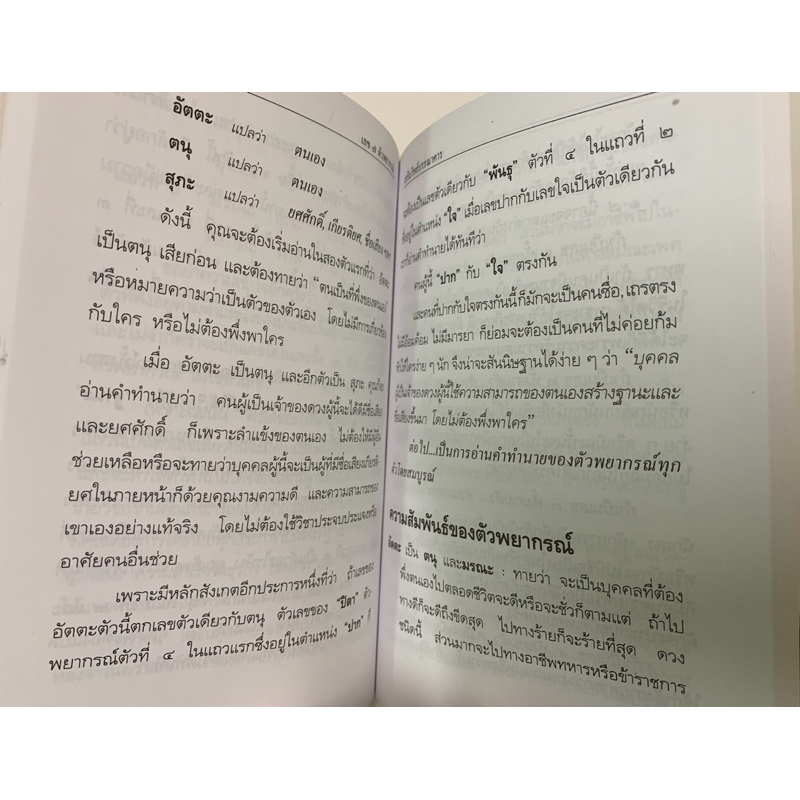 เลข ๗ ตัว
อัตตะ แปลว่า ตนเอง
ตนุ แปลว่า ตนเอง
สุภะ แปลว่า ยศศักดิ์, เกียรติยศ, ชื่อเสียง
ดังนี้ คุณจะต้องเริ่มอ่านในสองตัวแรกที่ว่า อัตตะ
เป็นตนุ เสียก่อน และต้องทายว่า "ตนเป็นที่พึ่งของตนเอง"
หรือหมายความว่าเป็นตัวของตัวเอง โดยไม่มีการเกี่ยวข้อง
กับใคร หรือไม่ต้องพึ่งพาใคร
เมื่อ อัตตะ เป็นตนุ และอีกตัวเป็น สุภะ
อ่านคำทำนายว่า คนผู้เป็นเจ้าของดวงผู้นี้จะได้ดีมีชื่อเสียง
และยศศักดิ์ ก็เพราะลำแข้งของตนเอง ไม่ต้องให้มีผู้อื่น
ช่วยเหลือหรือจะทายว่าบุคคลผู้นี้จะเป็นผู้ที่มีชื่อเสียงเกียรติ
ยศในภายหน้าก็ด้วยคุณงามความดี และความสามารถของ
เขาเองอย่างแท้จริง โดยไม่ต้องใช้วิชาประจบประแจงหรือ
อาศัยคนอื่นช่วย
เพราะมีหลักสังเกตอีกประการหนึ่งที่ว่า ถ้าเลขของ
อัตตะตัวนี้ตกเลขตัวเดียวกับตนุ ตัวเลขของ "ปิตา" ตัว
พยากรณ์ตัวที่ ๔ ในแถวแรกซึ่งอยู่ในตำแหน่ง "ปาก" ก็
เป็นเลขตัวเดียวกับ "พันธุ" ตัวที่ ๔ ในแถวที่ ๒
ซึ่งอยู่ในตำแหน่ง "ใจ" เมื่อเลขปากกับเลขใจเป็นตัวเดียวกัน
อ่านคำทำนายได้ทันทีว่า
คนผู้นี้ "ปาก" กับ "ใจ" ตรงกัน
และคนที่ปากกับใจตรงกันนี้ก็มักจะเป็นคนซื่อ, เถรตรง
ไม่อ้อมค้อม ไม่มีมารยา ก็ย่อมจะต้องเป็นคนที่ไม่ค่อยก้ม
หัวให้ใครง่าย ๆ นัก จึงน่าจะสันนิษฐานได้ง่าย ๆ ว่า "บุคคล
ผู้เป็นเจ้าของดวงผู้นี้ใช้ความสามารถของตนเองสร้างฐานะและ
ชื่อเสียงขึ้นมา โดยไม่ต้องพึ่งพาใคร"
ต่อไป...เป็นการอ่านคำทำนายของตัวพยากรณ์ทุก
ตัวโดยสมบูรณ์
ความสัมพันธ์ของตัวพยากรณ์
อัตตะ เป็น ตนุ และมรณะ : ทายว่า จะเป็นบุคคลที่ต้อง
พึ่งตนเองไปตลอดชีวิตจะดีหรือจะชั่วก็ตามแต่ ถ้าไป
ทางดีก็จะดีถึงขีดสุด ไปทางร้ายก็จะร้ายที่สุด ดวง
ชนิดนี้ ส่วนมากจะไปทางอาชีพทหารหรือข้าราชการ